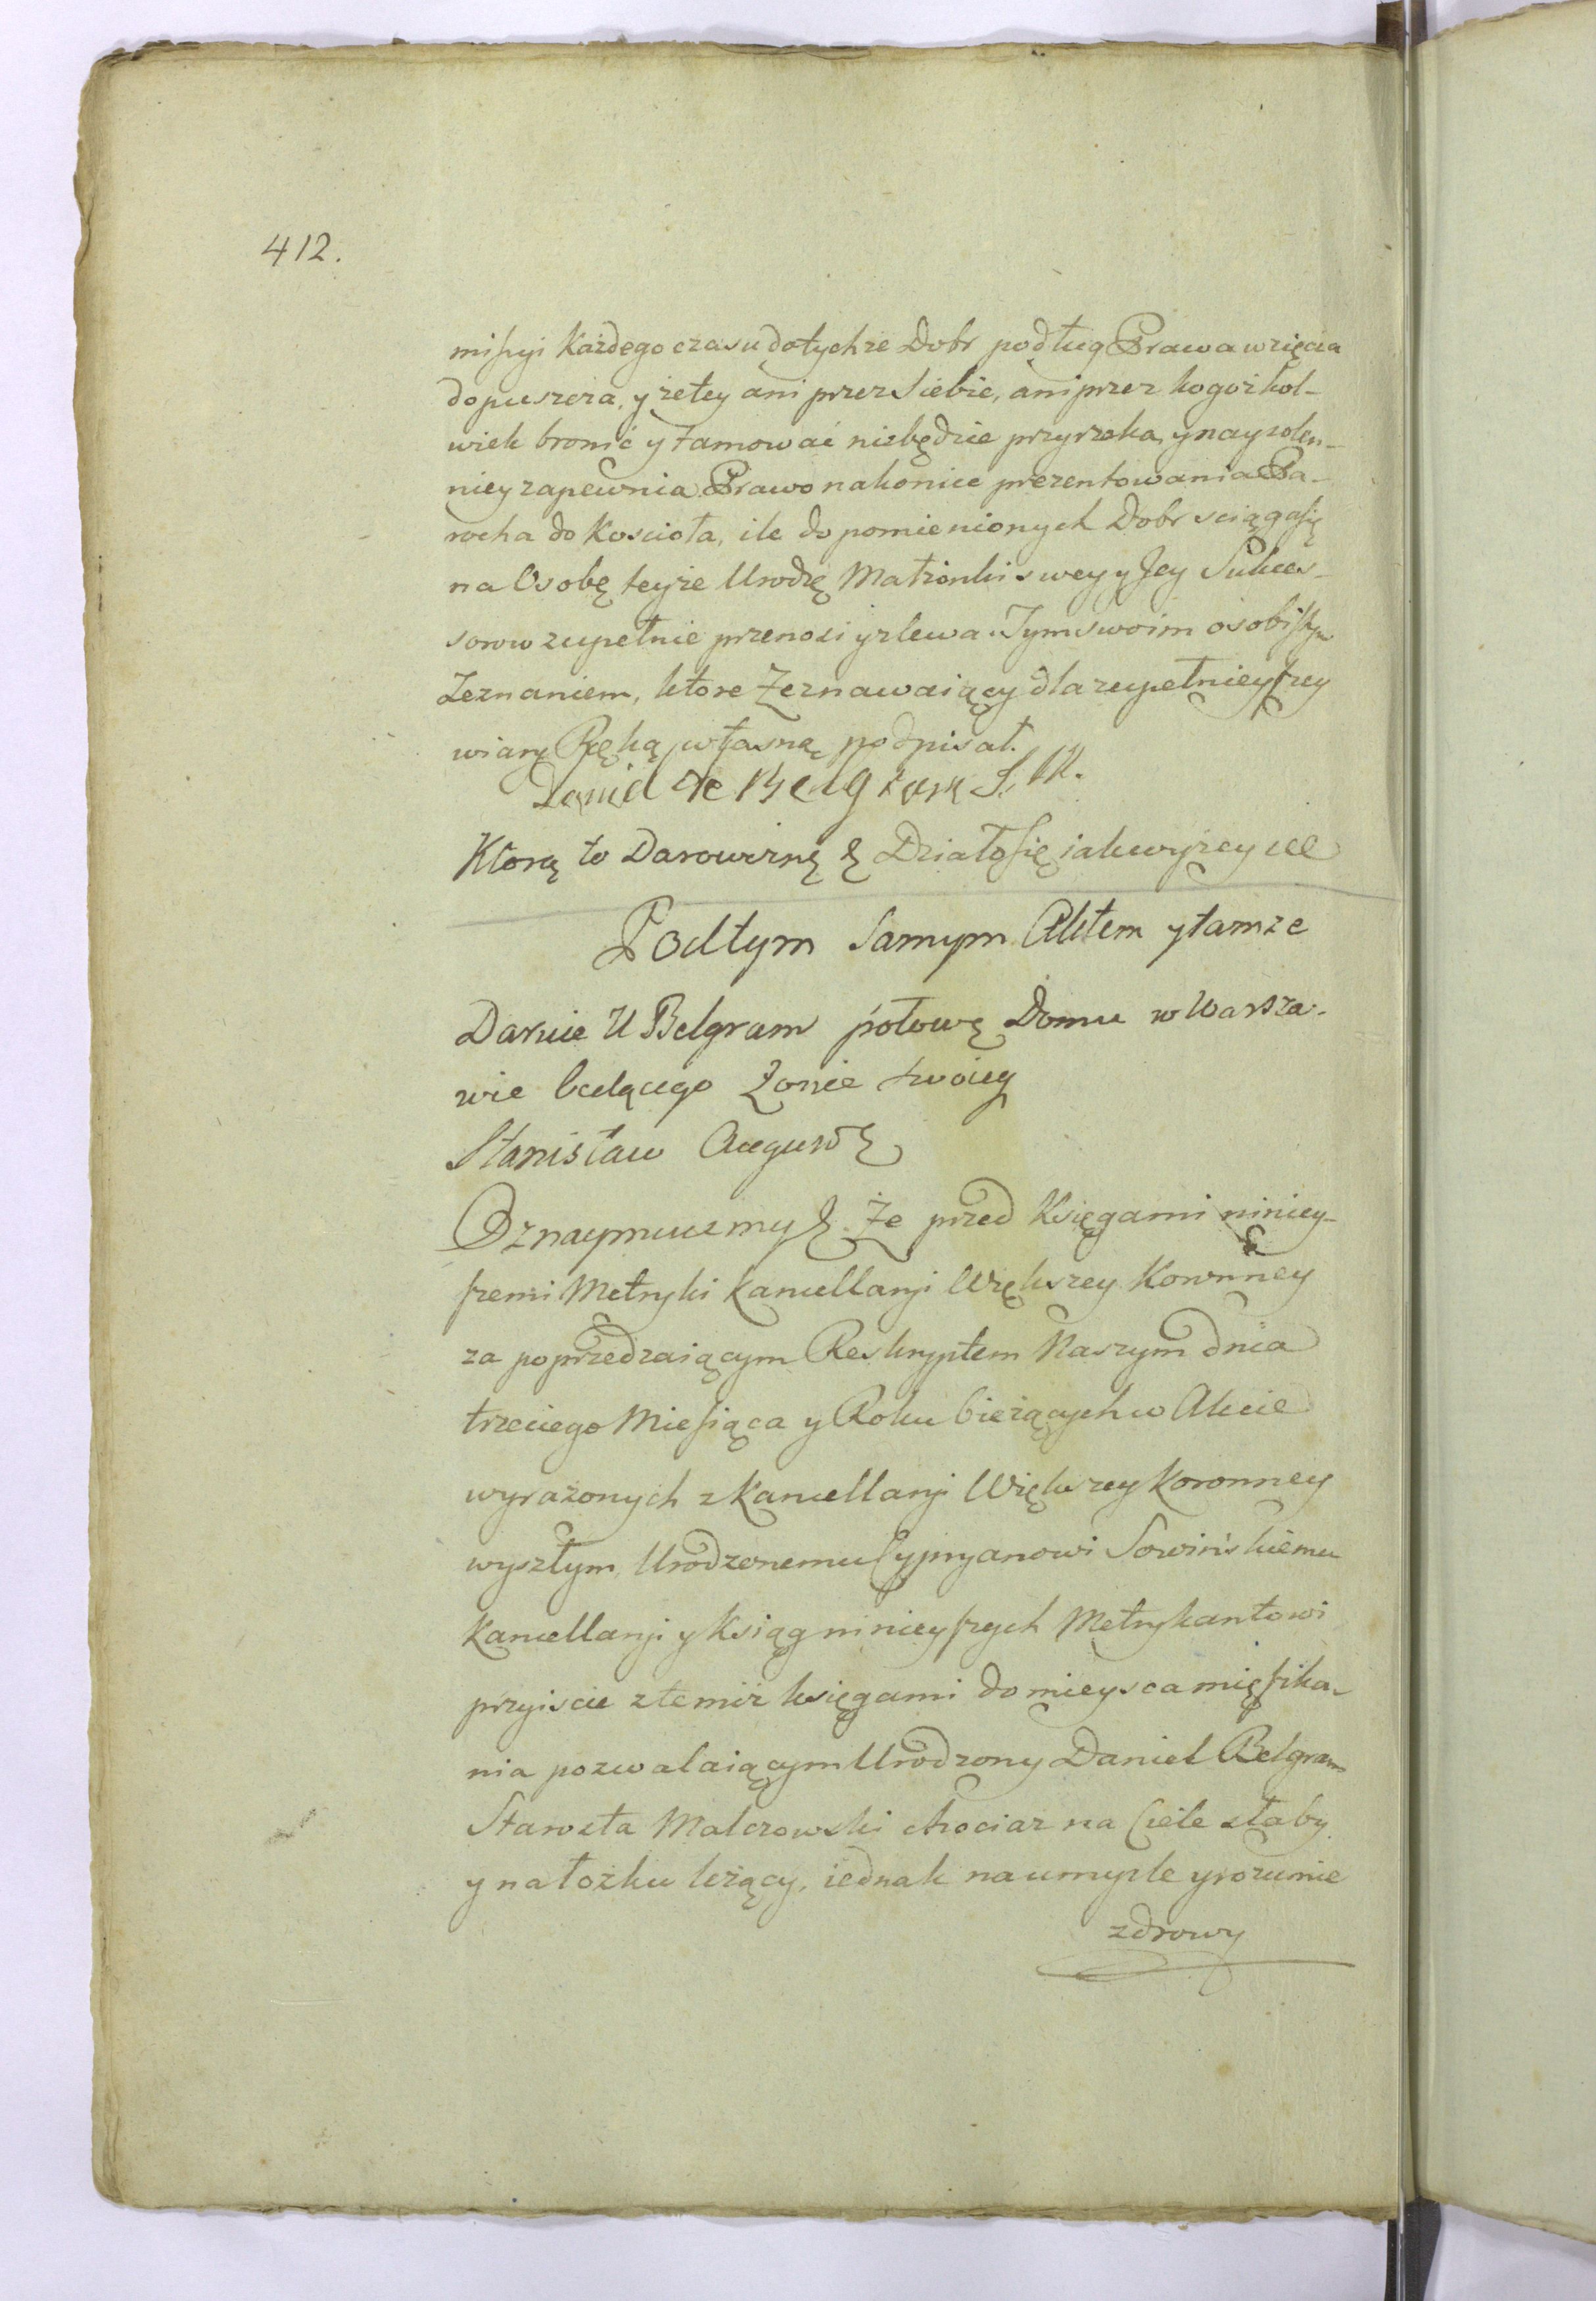 412.
missyi Każdego czasu dotychże Dobr podług Prawa wzięcia
dopuszcza, y żetey ani przez Siebie, ani przez kogożkol-
wiek bronić y tamować niebędzie przyrzeka, y nayzolen-
niey zapewnia Prawo nakoniec prezentowania Pa-
rocha do Koscioła, ile do pomienionych Dobr sciągasię
na Osobę teyże Urodzę Małżonki swey y Jey Sukces-
sorow zupełnie przenosi y zlewa. Tym swoim osobistym
Zeznaniem, ktore Zeznawaiący dla zupełnieyszey
wiary Ręką własną podpisał.
Daniel de Belgram S. M.
Ktorą to Darowiznę & Działosię iakwyżey
Podtym Samym Aktem y tamże
Daruie U Belgram połowę Domu w Warsza-
wie będącego Żonie swoiey
Stanisław August &
Oznaymuiemy &. Że przed Księgami niniey-
szemi Metryki Kancellaryi Większey Koronney
za poprzedzaiącym Reskryptem Naszym dnia
trzeciego Miesiąca y Roku bieżących w Akcie
wyrażonych z Kancellaryi Większey Koronney
wyszłym, Urodzonemu Cypryanowi Sowińskiemu
Kancellaryi y Ksiąg ninieyszych Metrykantowi
przyiscie z temiż księgami do mieysca mięszka-
nia pozwalaiącym Urodzony Daniel Belgram
Starosta Malczowski chociaz na Ciele słaby
y na łożku leżący, iednak na umyzle y rozumie
zdrowy